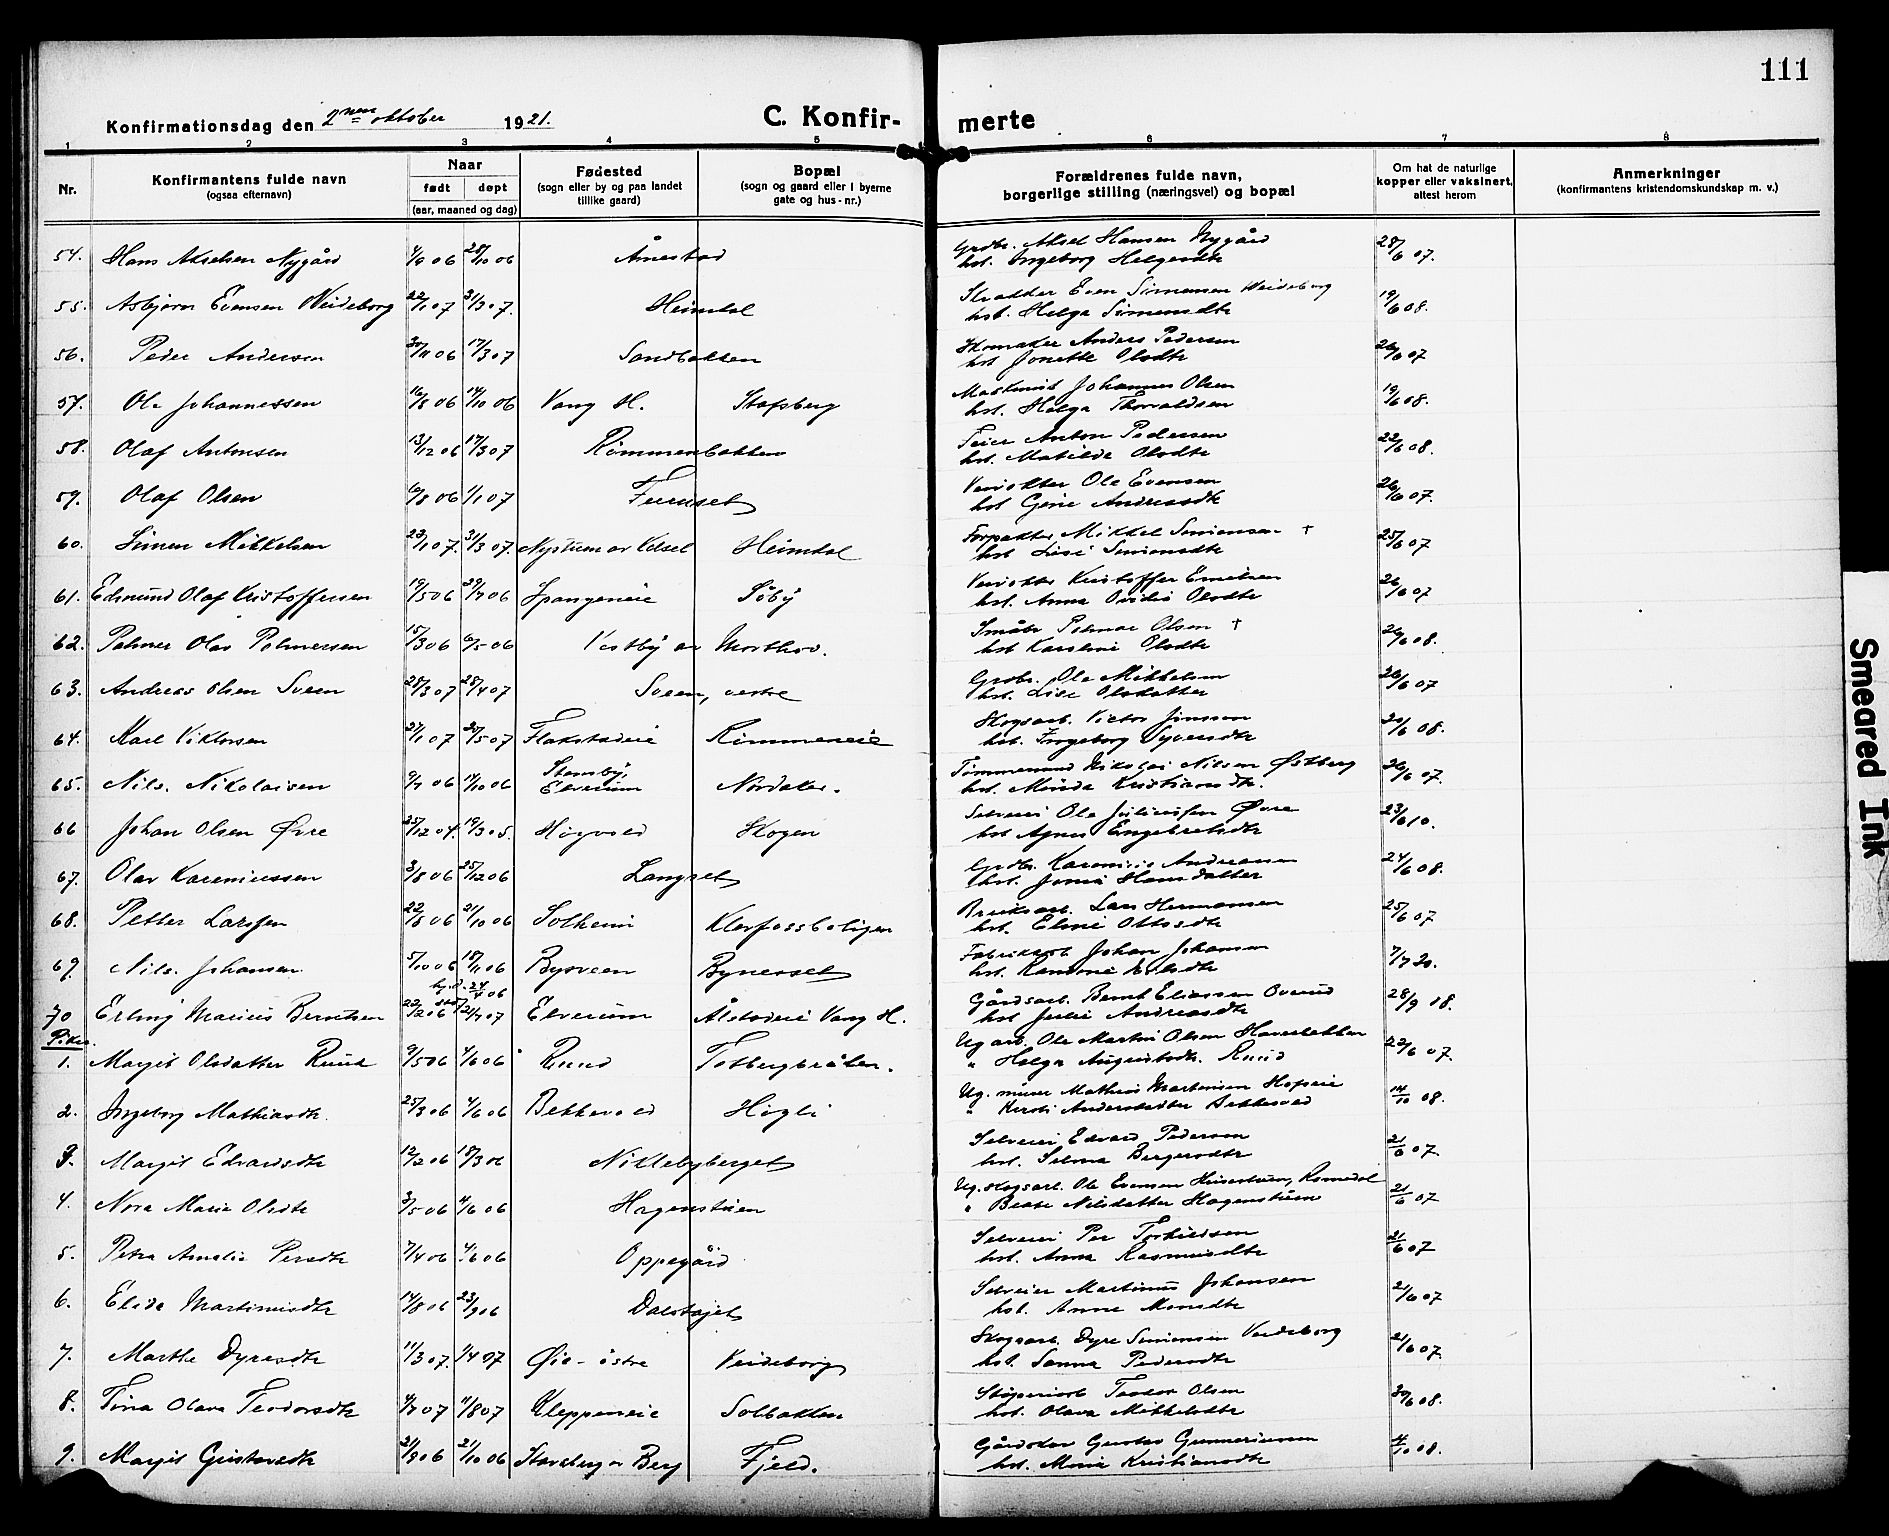 111
Konfirmationsdag den 2nen oktober 1921. C. Konfir- merte
1 2 3 4 5 6 7 8
Nr. Konfirmantens fulde navn (ogsaa efternavn) Naar født døpt (aar, maaned og dag) Fødested (sogn eller by og paa landet tillike gaard) Bopæl (sogn og gaard eller i byerne gate og hus-nr.) Forældrenes fulde navn, borgerlige stilling (næringsvei) og bopæl Om hat de naturlige kopper eller vaksinert, attest herom Anmerkninger (konfirmantens kristendomskundskap m. v.)
54. Hans Akselsen Nygård 28/10 06 Ånestad Grdbr. Aksel Hansen Nygård 28/6 07.
hst. Ingeborg Helgesdtr
55. Asbjørn Evensen Veideborg 22/1 07 31/3 07. Heimdal Skrædder Even Simensen Veideborg 19/6 08.
hst. Helga Simensdtr
56. Peder Andersen 30/11 06 17/3 07 Sandbakken Skomaker Anders Pedersen 26/6 07
hst. Jonette Olsdtr
57. Ole Johannessen 16/8 06 14/10 06 Vang H. Stafsberg Maskinist Johannes Olsen 19/6 08.
hst. Helga Thorvaldsen
58. Olaf Antonsen 13/12 06 17/3 07 Rømmenbakken Feier Anton Pedersen 22/6 08.
hst. Matilde Olsdtr
59. Olaf Olsen 6/8 06 1/1 07 Furuset Ole Evensen 26/6 07.
hst. Gine Andreasdtr
60. Simen Mikkelsen 23/1 07. 31/3 07. Heimdal Forpakter Mikkel Simensen †  25/6 07
hst. Lise Simensdtr
61. Edmund Olaf Kristoffersen 19/5 06 29/7 06 Spangeneie Søby Kristoffer Emilsen 26/6 07
hst. Anna Ovidie Olsdtr
62. Palmer Olav Palmersen 15/3 06 6/5 06 Vestby av Morthov. Småbr Palmar Olsen † 26/6 08.
hst Karoline Olsdtr
63. Andreas Olsen Sveen 28/3 07 28/4 07 Sveen, vestre Grdbr. Ole Mikkelsen 26/6 07
hst. Lise Olsdatter
64. Karl Viktorsen 27/1 07 20/5 07 Flakstadeie Rømmeneie Skogsarb. Victor Jonsson 20/6 08.
hst. Ingeborg Syversdtr
65. Nils Nikolaisen 9/7 06 14/10 06 Stensby, Elverum Nordaker. Tømmermand Nikolai Nilsen Østberg 26/6 07.
hst. Minda Kristiansdt.
66 Johan Olsen Øvre 25/12 04. 19/3 05. Høgvold Skogen Selveier Ole Juliussen Øvre 23/6 10.
hst Agnes Engebretsdtr
67. Olav Kareniussen 3/8 06 25/12 06 Langset Grdbr. Karenius Andreassen 24/6 08.
hst. Jonie Hansdatter
68. Petter Larssen 22/8 06 21/10 06 Solheim Klevfossboligen Bruksarb. Lars Hermansen 25/6 07
hst. Eline Ottosdtr
69. Nils Johansen 5/10 06 18/11 06 Bysveen Bynerset Fabrikarb Johan Johansen 7/7 20.
hst.
70 Erling Marius Berntsen 22/2 06 Elverum Ålstadeie Vang H. Gårdsarb. Bernt Eliassen Overud 28/9 18.
hst Julie Andreasdtr
Piker.
1. Margit Olsdatter Ruud 9/5 06 4/6 06 Ruud Tolbergbråten. Ug arb. Ole Martin Olsen Haverbakken 22/6 07.
" Helga Augustsdtr. Ruud
2. Ingeborg Mathiasdtr. 25/3 06 4/6 06 Bekkevold Høgli Ug. murer Mathias Martinsen Hofseie 14/10 08.
" Kersti Andersdatter Bekkevold
3. Margit Edvardsdtr 12/2 06 18/3 06 Niklebyberget Selveier Edvard Pedersen 21/6 07
hst. Selma Bergersdtr
4. Nora Marie Olsdtr 3/5 06 4/6 06 Hagenstuen Ug. skogsarb. Ole Evensen Romedal 21/6 07
" Beate Nilsdatter Hagenstuen
5. Petra Amalie Persdtr 7/4 06 4/6 06 Oppegård Selveier Per Torkildsen 21/6 07
hst. Anna Rasmusdtr
6. Elida Martinusdtr 14/8 06 23/9 06 Dalshøjet Selveier Martinus Johansen 21/6 07
hst. Anne Monsdtr
7. Marthe Dyresdtr 11/3 07. 1/4 07 Øie-østre Veideborg Skogsarb. Dyre Simensen Veideborg 21/6 07.
hst. Sanna Pedersdtr
8. Tina Olava Teodorsdtr 4/7 07 11/8 07 Kleppeneie Solbakken Støperiarb Teodor Olsen 30/6 08.
hst. Olava Mikkelsdtr
9. Margit Gustavsdtr 2/9 06 21/10 06 Stavsberg Berg Fjeld. Gustav Gunneriussen 4/10 08.
hst. Marie Kristiansdtr
Smeared Ink